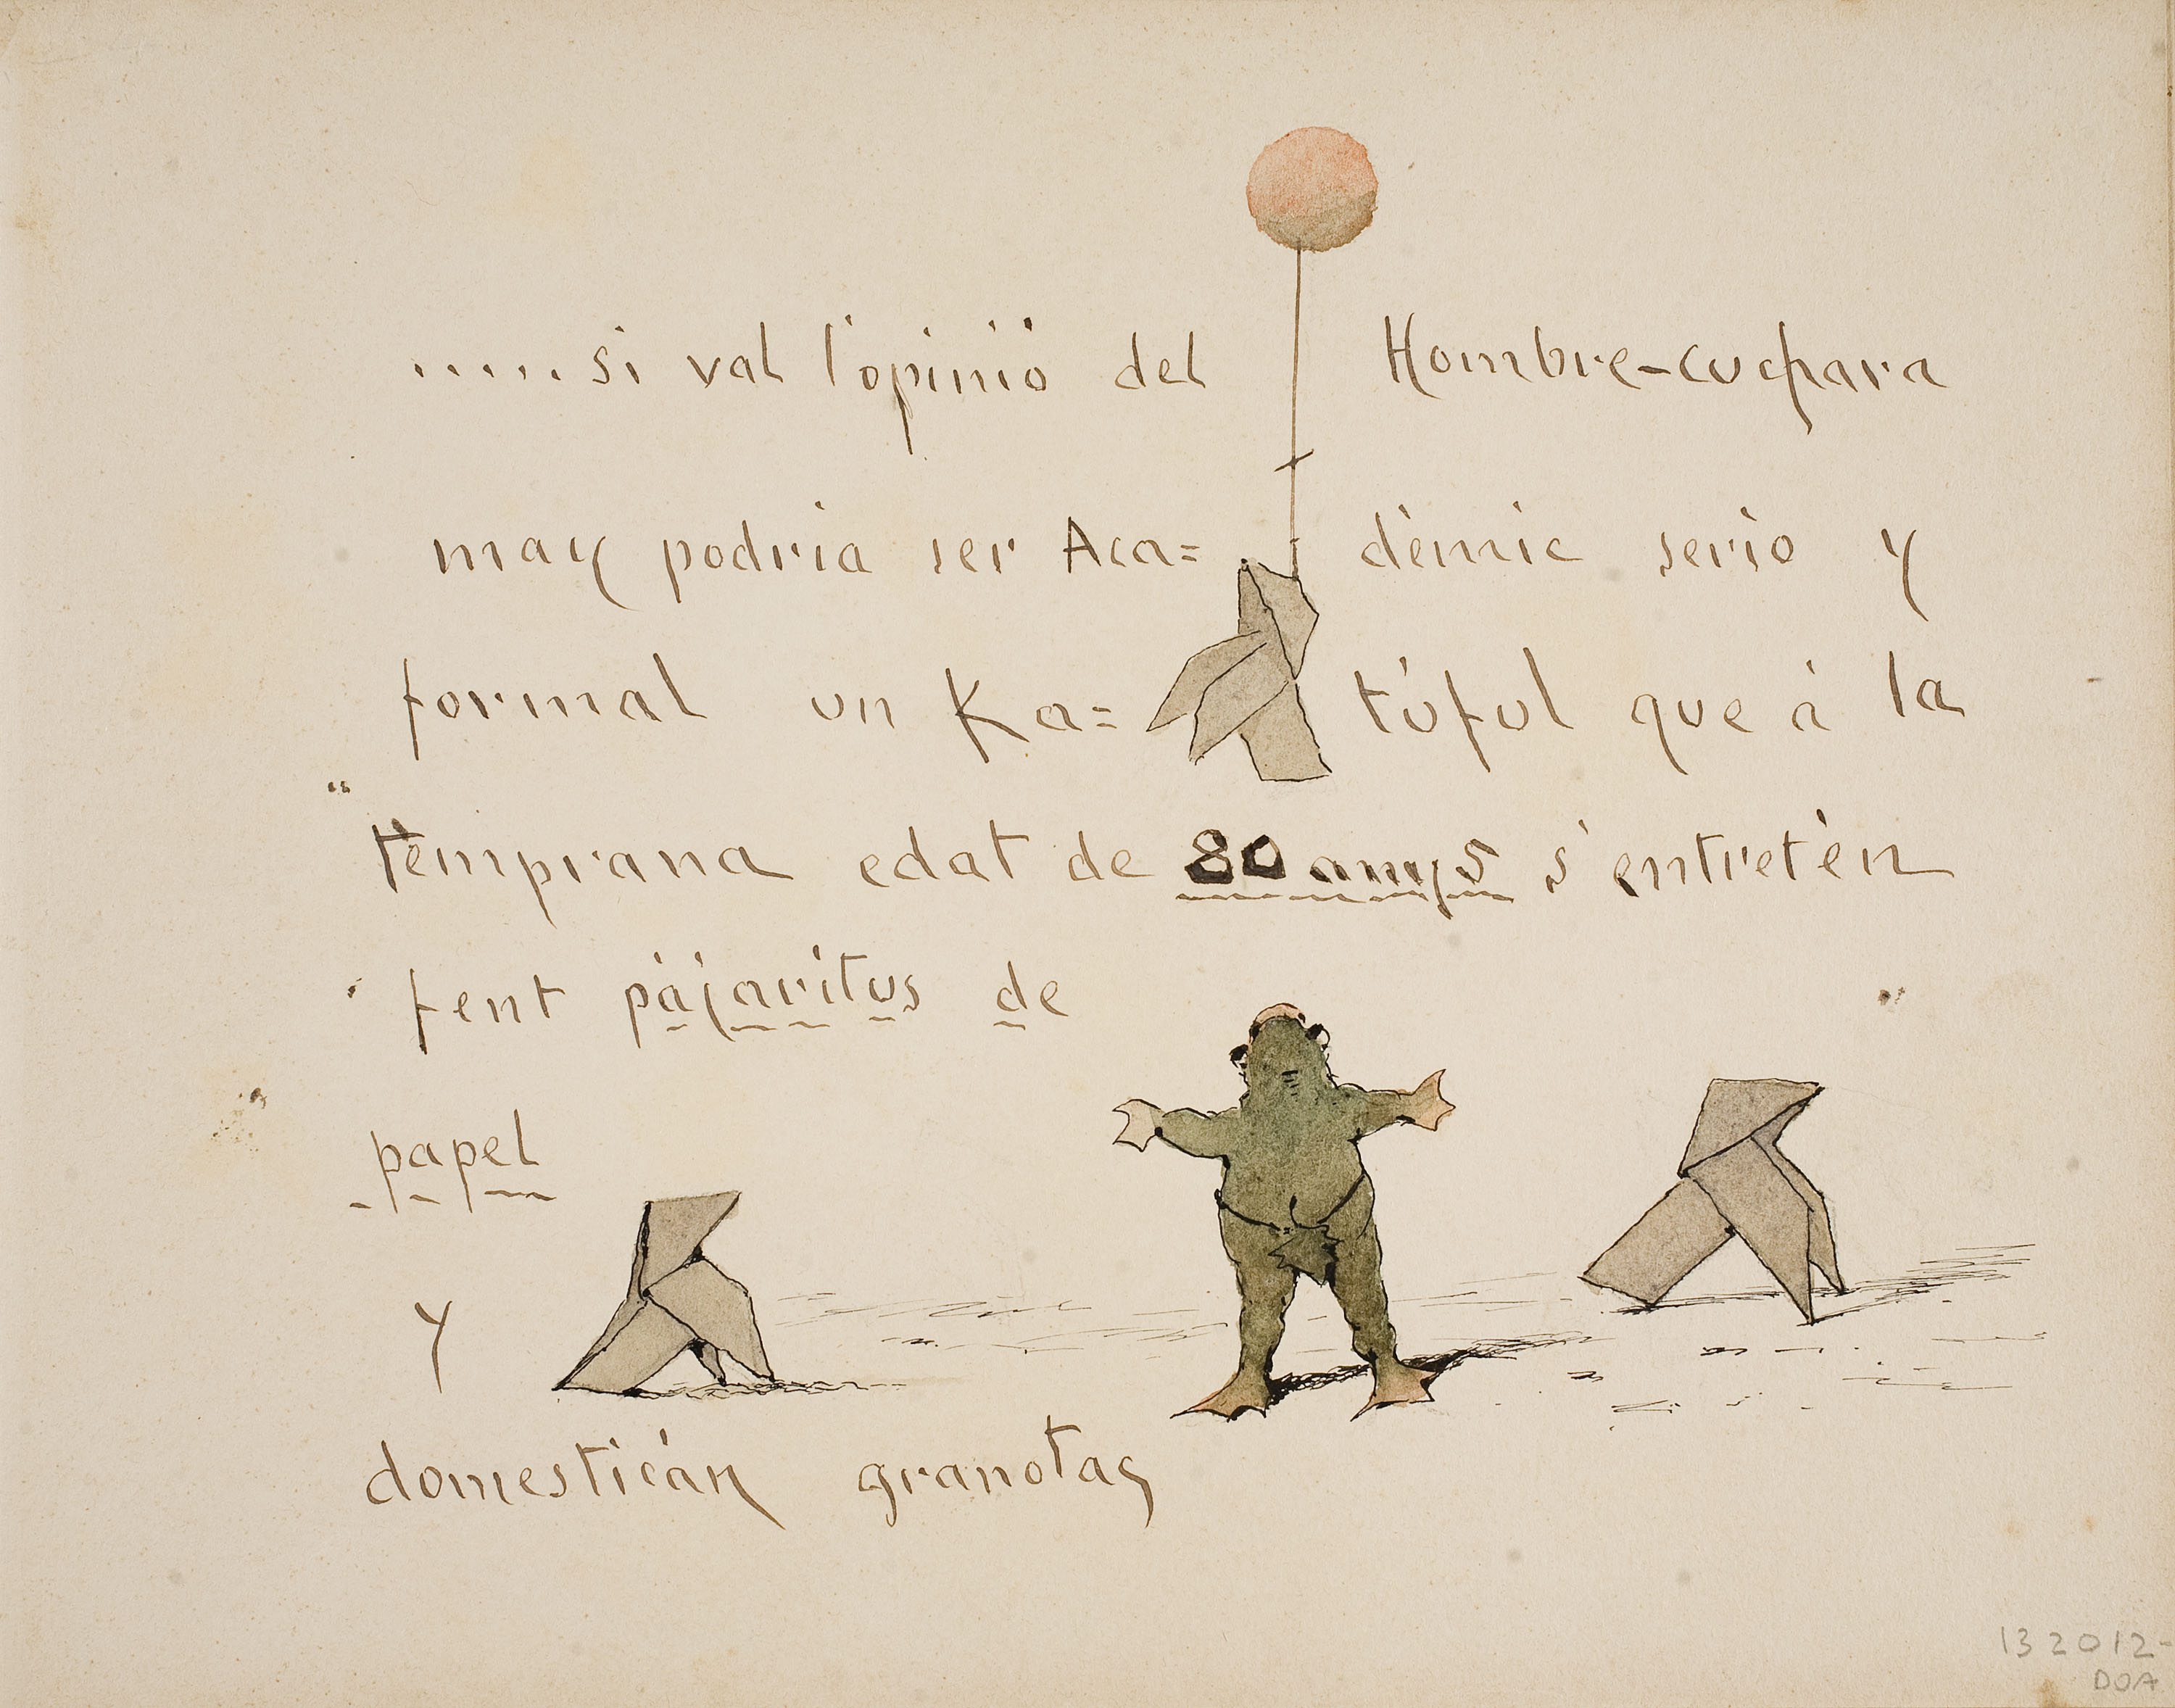 .....si val l'opinió del Hombre-cuchara
may podria ser Aca=dèmic serio y
formal un Ka=túful que á la
"temprana edat de 80 anys s'entretén
fent pájaritus de
papel
y
domesticán granotas
132012-
DOA